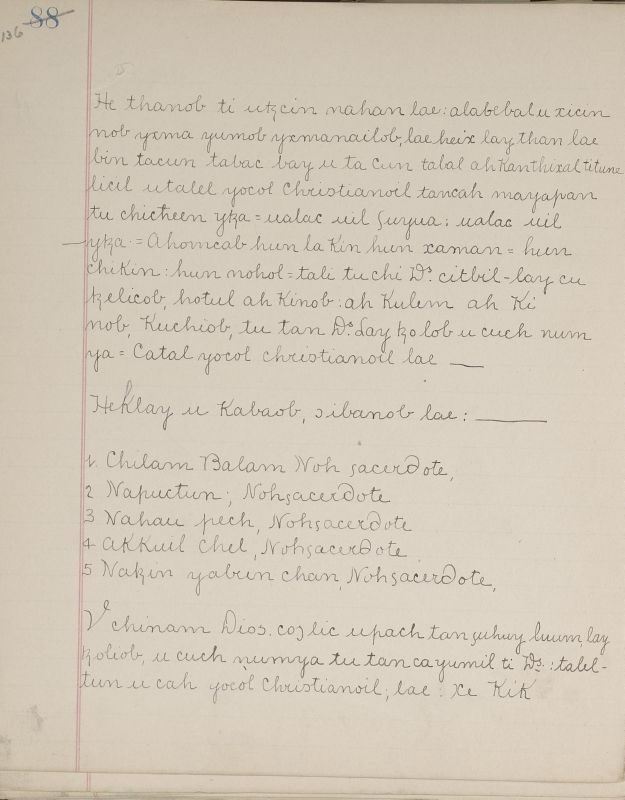 88
136
He thanob ti utzcin nahan lae: alabebal u xicin
nob yxma yumob yxmanailob, lae heix lay than lae
bin tacun tabac bay u ta cun tabal ah Kanthixal titune
licil utalel yocol Christianoil tancah mayapan
tu chicheen yꝁa = ualac uil ʃuyua: ualac uil
yꝁa = Ahomcab hun la Kin hun xaman = hun
chikin: hun nohol = tali tu chi Ds. citbil - lay cu
ꝁelicob, hotul ah Kinob: ah Kulem ah Ki
nob, Kuchiob, tu tan Ds. Lay ꝁo lob u cuch num
ya = Catal yocol christianoil lae —
HeKlay u Kabaob, ɔibanob lae: —
1. Chilam Balam Noh ʃacerdote,
2 Napuctun; Nohʃacerdote
3 Nahau pech, Nohʃacerdote
4 AKKuil Chel, Nohʃacerdote
5 Naꝁin yabun chan, Nohʃacerdote,
V chinam Dios. coɔ lic upach tan ʃuhuy luum, lay
ꝁoliob, u cuch numya tu tan ca yumil ti Ds.: talel-
tun u cah yocol Christianoil; lae: xe KiK